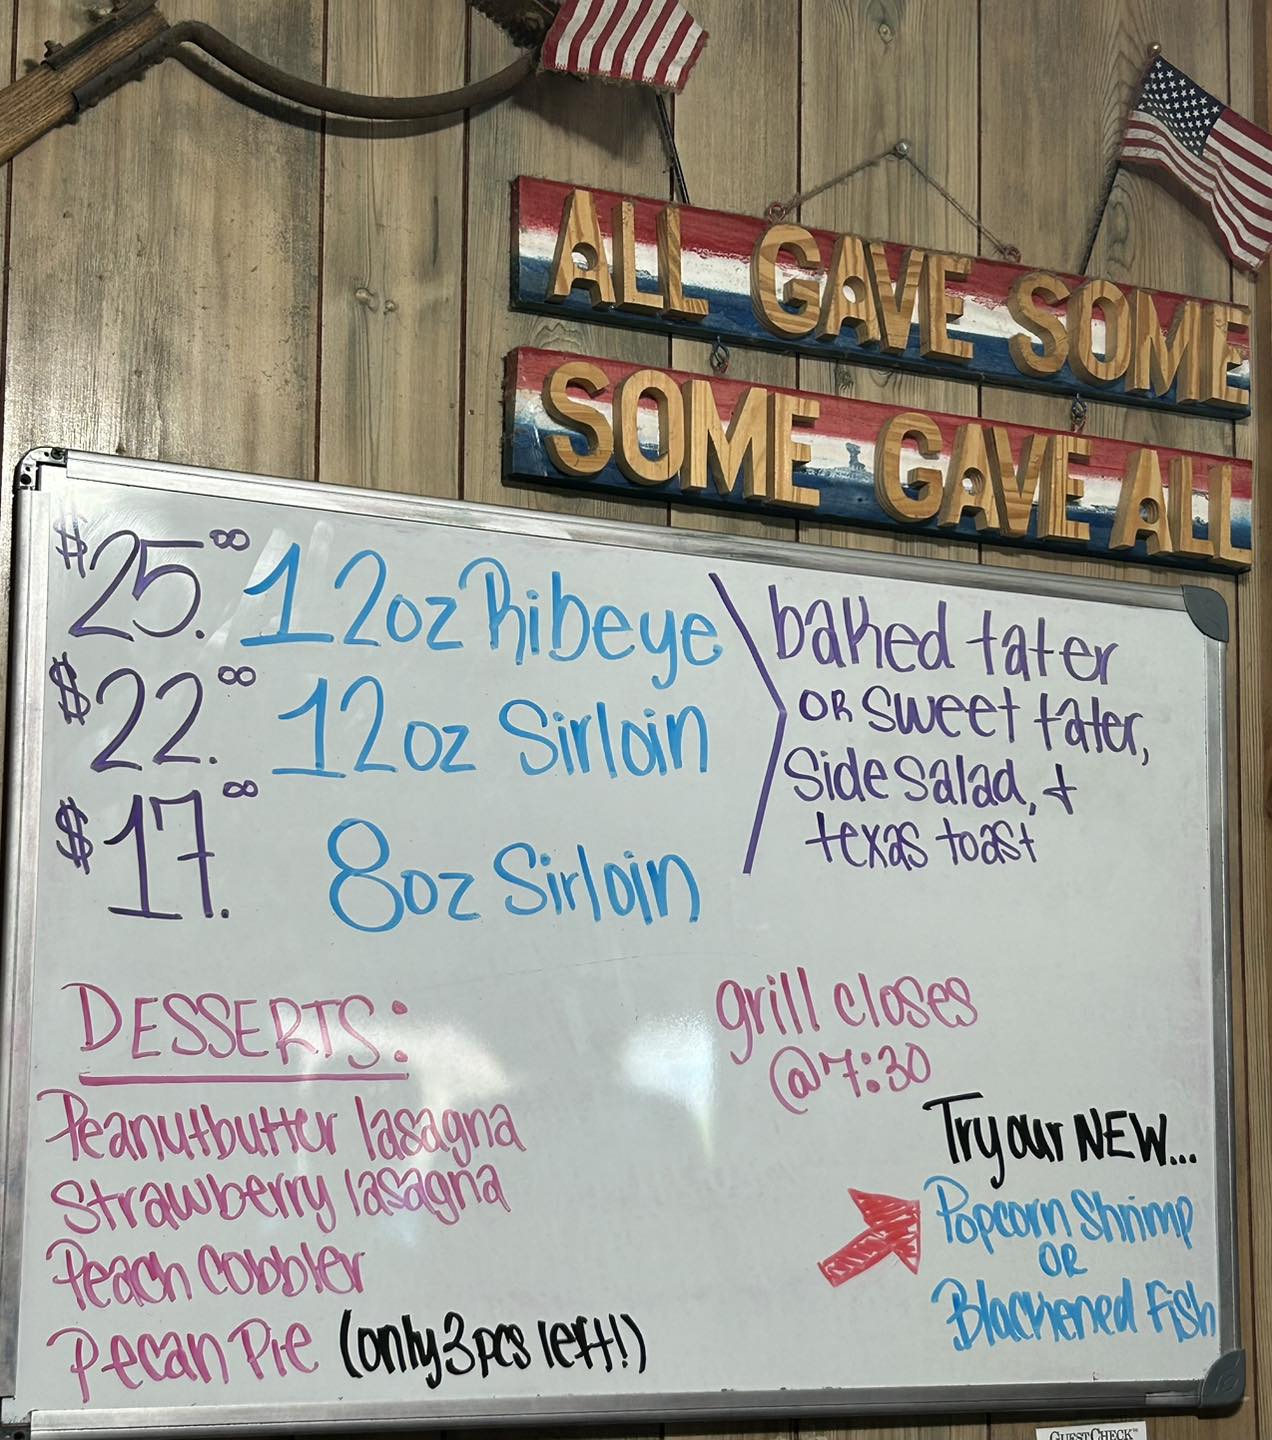 ALL GAVE SOME
SOME GAVE ALL
$25.00 12oz Ribeye
$22.00 12oz Sirloin
$17.00 8oz Sirloin
baked tater
OR sweet tater,
Side Salad, +
texas toast
DESSERTS:
Peanutbutter lasagna
Strawberry lasagna
Peach Cobbler
Pecan Pie (only 3pcs left!)
grill closes
@7:30
Try our NEW...
Popcorn Shrimp
OR
Blackened Fish
GUESTCHECK™